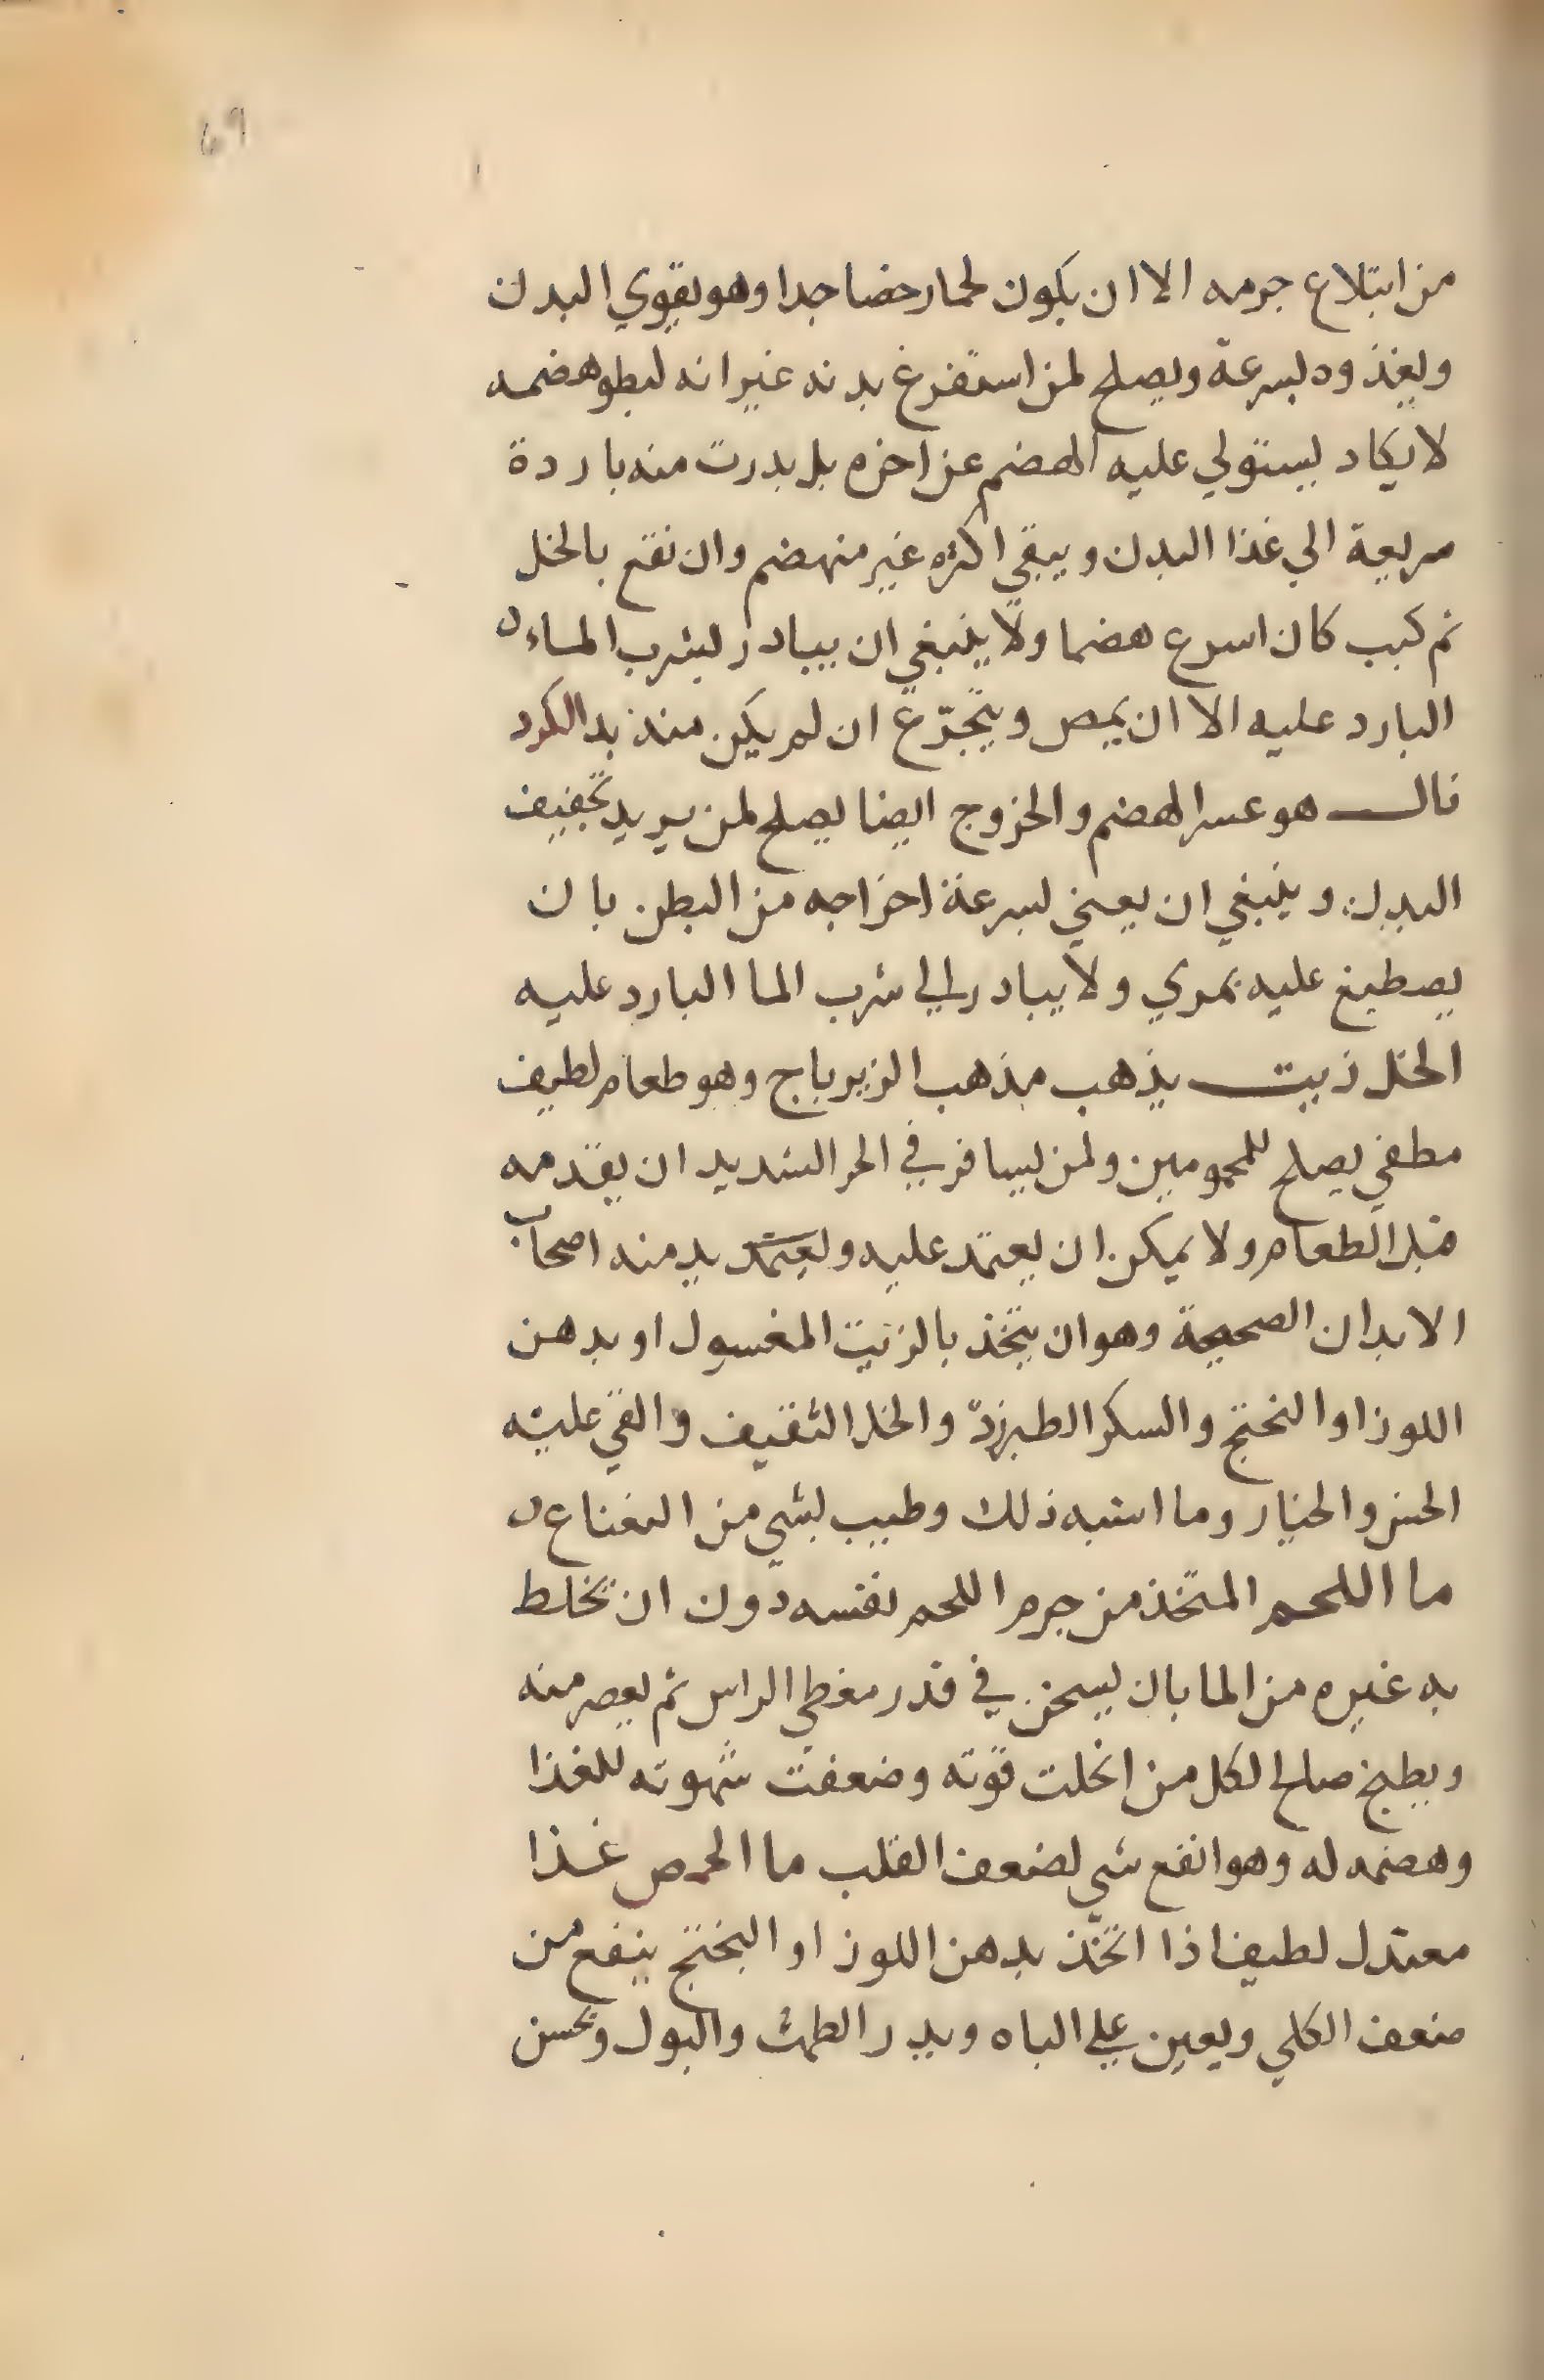 69
من ابتلاع جرمه الا ان يكون لحما رخصا جدا وهو يقوي البدن
ويغذوه بسرعة ويصلح لمن استفرغ بدنه غير انه لبطو هضمه
لا يكاد يستولي عليه الهضم عن اخره بل بدرت منه باردة
سريعة الي غذا البدن ويبقي اكثره غير منهضم وان نقع بالخل
ثم كبب كان اسرع هضما ولا ينبغي ان يبادر لشرب الماء
البارد عليه الا ان يمص ويتجرّع ان لم يكن منه بد الكرد
ناك هو عسر الهضم والخروج ايضا يصلح لمن يريد تجفيف
البدن وينبغي ان يعني لسرعة اخراجه من البطن بان
يصطبغ عليه بمري ولا يبادر الي شرب الما البارد عليه
الخل زيت يذهب مذهب الزيرباج وهو طعام لطيف
مطفي يصلح للمحمومين ولمن يسافر في الحر الشديد ان يقدمه
قبل الطعام ولا يمكن ان يعتمد عليه ويعتمد بد منه اصحاب
الابدان الصحيحة وهو ان يتخذ بالزيت المغسول او بدهن
اللوز او النختج والسكر الطبرزدّ والخل الثقيف والقي عليه
الخس والخيار وما اشبه ذلك وطيب بشي من النعناع
ما اللحم المتخذ من جرم اللحم نفسه دون ان يخلط
به غيره من الما بان يسخن في قدر مغطي الراس ثم يعصر منه
ويطبخ صالح لكل من انحلت قوته وضعفت شهوته للغذا
وهضمه له وهو انفع شي لضعف القلب ما الحمص غذا
معتدل لطيف اذا اتخّذ بدهن اللوز او البختج ينفع من
ضعف الكلي ويعين علي الباه ويدر الطمث والبول ويحسن